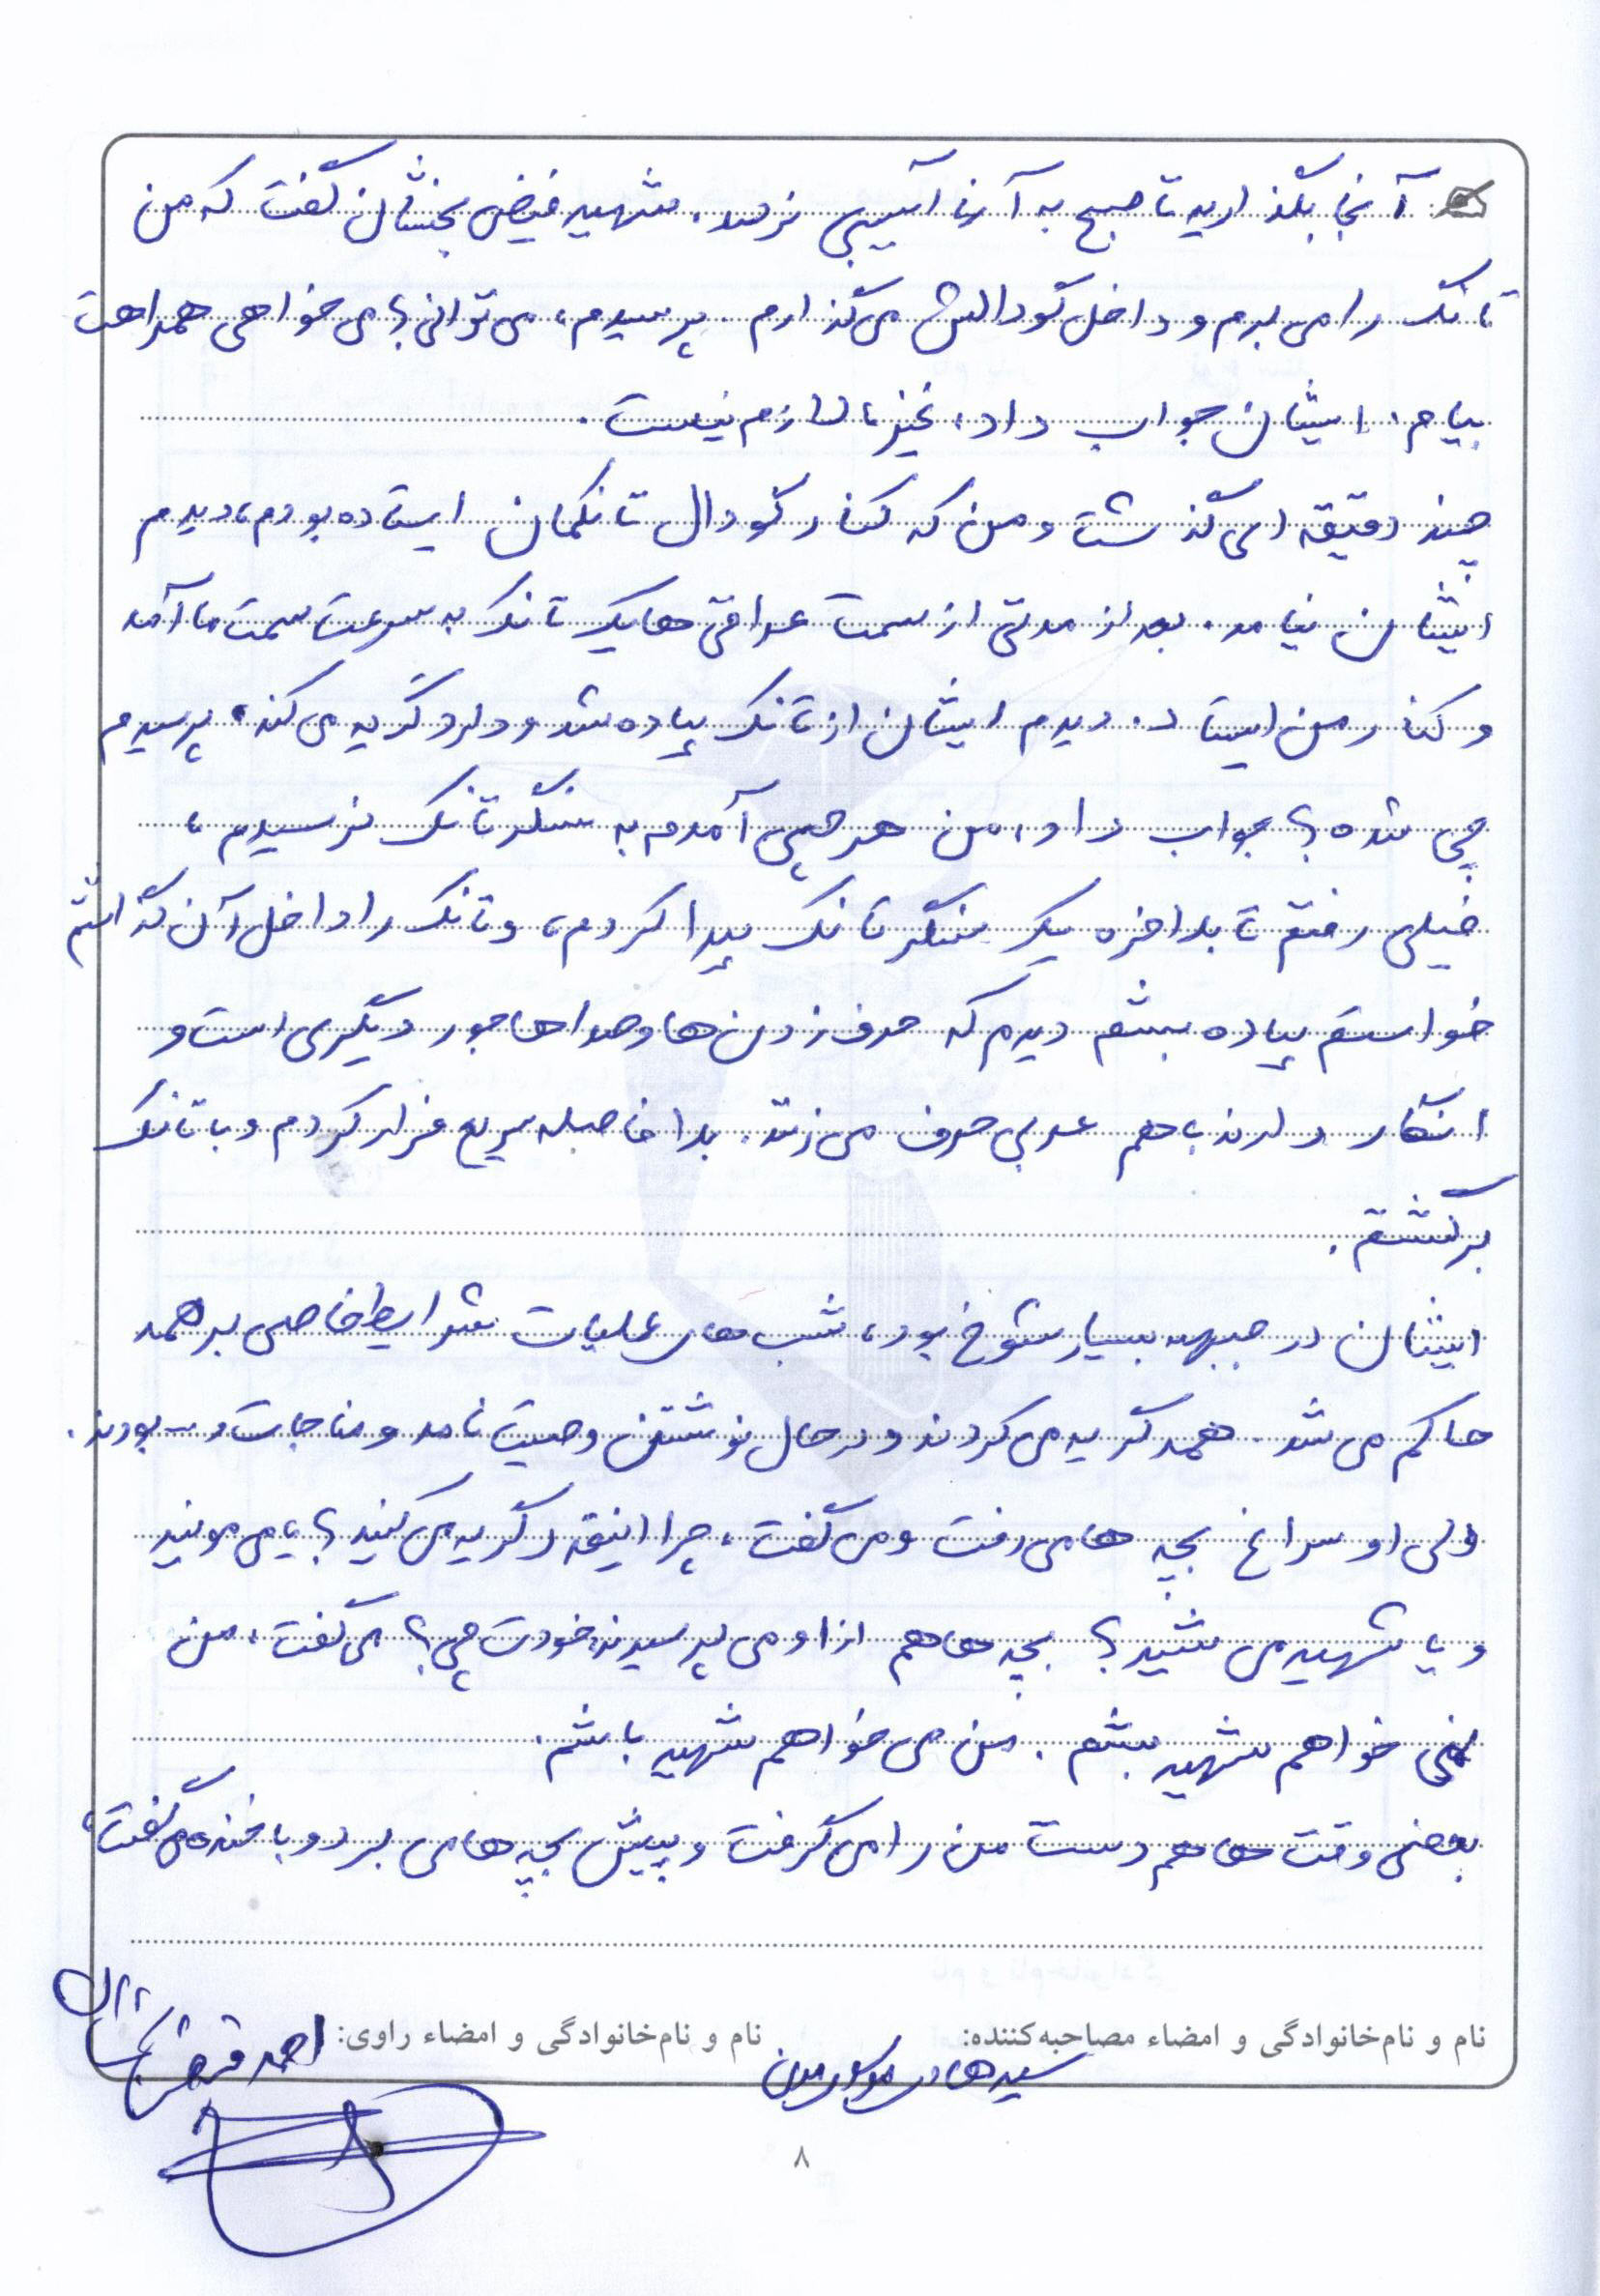 آنجا بگذارید تا صبح به آنها آسیبی نرسد. شهید فیض بخشان گفت که من
تانک را می برم و داخل گودالش می گذارم. پرسیدم، می توانی؟ می خواهی همراهت
بیام. ایشان جواب داد، نخیر، لازم نیست.
چند دقیقه ای گذشت و من که کنار گودال تانکمان ایستاده بودم، دیدم
ایشان نیامد. بعد از مدتی از سمت عراقی ها یک تانک به سرعت سمت ما آمد
و کنار من ایستاد. دیدم ایشان از تانک پیاده شد و دارد گریه می کند. پرسیدم
چی شده؟ جواب داد، من هر چی آمدم به سنگر تانک نرسیدم،
خیلی رفتم تا بالاخره یک سنگر تانک پیدا کردم، و تانک را داخل آن گذاشتم
خواستم پیاده بشم دیدم که حرف زدن ها و صداها جور دیگری است و
انگار دارند با هم عربی حرف می زنند. بلافاصله سریع فرار کردم و با تانک
برگشتم.
ایشان در جبهه بسیار شوخ بود، شب های عملیات شرایط خاصی بر همه
حاکم می شد. همه گریه می کردند و در حال نوشتن وصیت نامه و مناجات و... بودند.
ولی او سراغ بچه ها می رفت و می گفت، چرا اینقدر گریه می کنید؟ یا می مونید
و یا شهید می شید؟ بچه ها هم از او می پرسیدند، خودت چی؟ می گفت، من
نمی خواهم شهید بشم. من می خواهم شهید باشم.
بعضی وقت ها هم دست من را می گرفت و پیش بچه ها می برد و با خنده می گفت،
نام و نام‌خانوادگی و امضاء مصاحبه‌کننده: سید هادی
نام و نام‌خانوادگی و امضاء راوی: احمد
۸